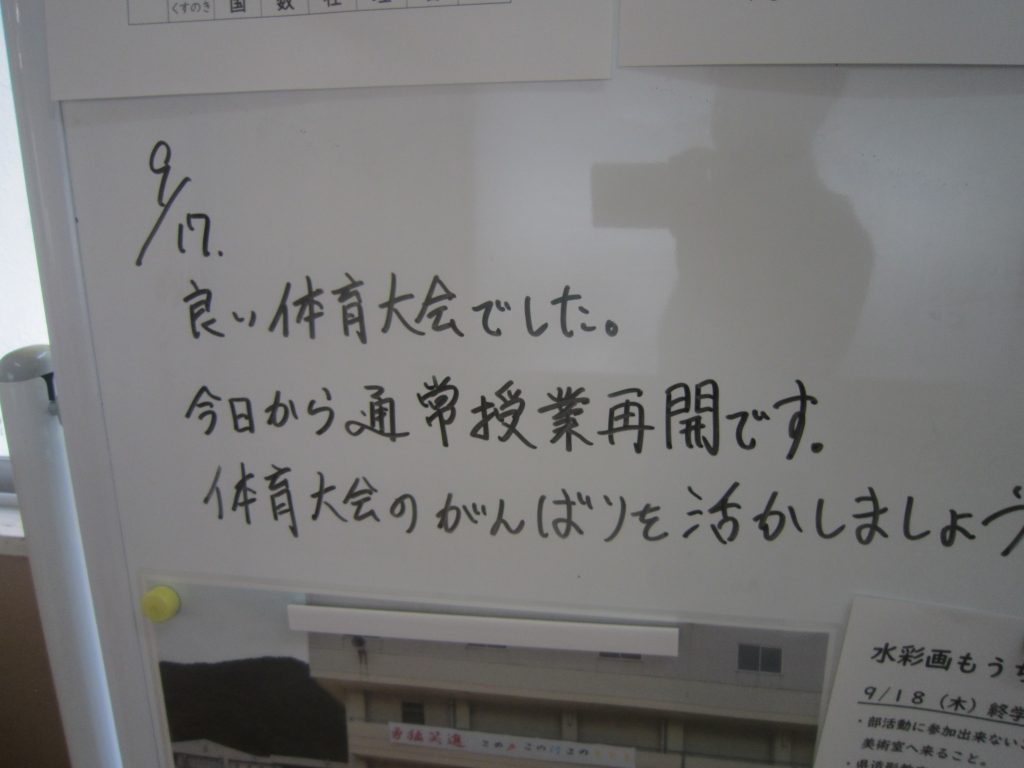 くすのき 国 数 社
9/17.
良い体育大会でした。
今日から通常授業再開です。
体育大会のがんばりを活かしましょう
勇猛突進
水彩画もう
9/18（木）終学
・部活動に参加出来ない
美術室へ来ること。